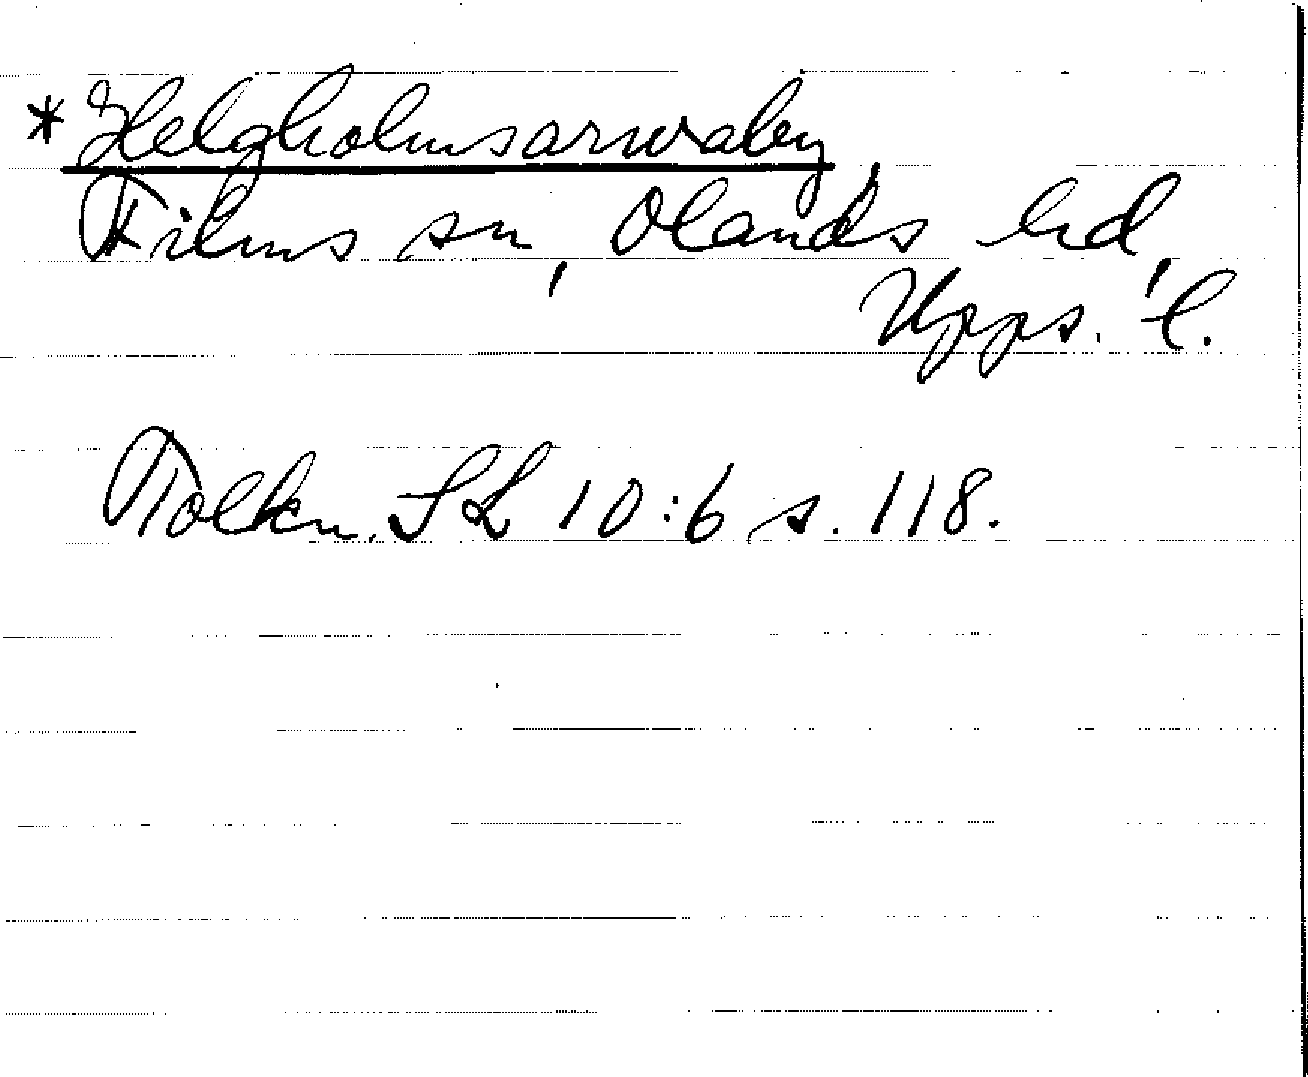 * Helgholmsarwaby
Films sn, Olands hd,
Upps. l.
Tolkn. SL 10:6 s. 118.